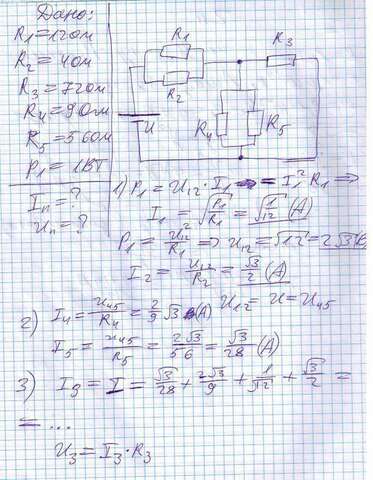 Дано:
R1=12ом
R2=4ом
R3=72ом
R4=9Ом
R5=56ом
P1=1Вт
In=?
Un=?
R1
R2
R3
R4
R5
U
1) P1=U12·I1 = I1² R1 ⇒
I1=√(P1/R1)=√(1/12) (A)
P1=U12²/R1 ⇒ U12=√12=2√3 В
I2=U12/R2=√3/2 (A)
2) I4=U45/R4=2/9 √3 (A) U12=U=U45
I5=U45/R5=2√3/56=√3/28 (A)
3) I3=I=√3/28+2√3/9+1/√12+√3/2=
=...
U3=I3·R3